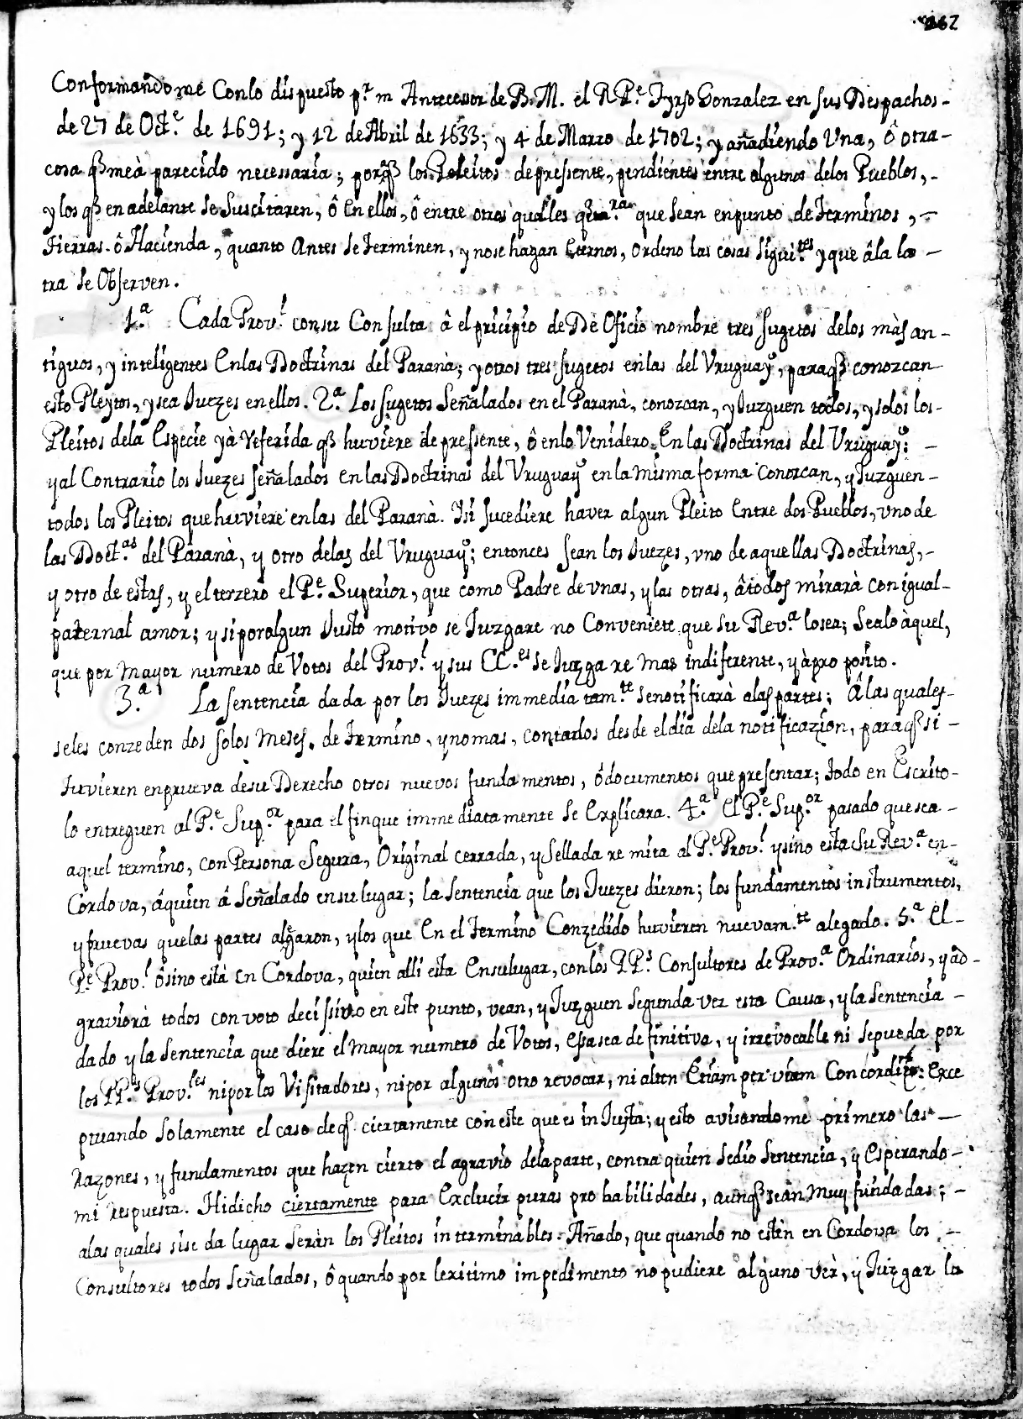 262
Conformandome Conlo dispuesto pr. m Antecessor de B.M. el R Pe. Tyrso Gonzalez en sus Despachos-
de 27 de Octe. de 1691; y 12 de Abril de 1633; y 4 de Marzo de 1702; y añadiendo Una, ô otra-
cosa q̃ meà parecido necessaria; porq̃ los Pleitos de pressente, pendientes entre algunos delos Pueblos,-
y los q̃ en adelante se Suscitaren, ô en ellos, ô entre otros quales que sean enpunto de Terminos,-
Tierras. ô Hacienda, quanto Antes se Terminen, y nose hagan Eternos, Ordeno las cosas siguites. y que âla le-
tra se Observen.
1.a Cada Provl. con su Consulta â el pricipio de De Oficio nombre tres sugetos delos màs an-
tiguos, y inteligentes En las Doctrinas del Paranà; y otros tres sugetos en las del Vruguay, paraq̃ conozcan
esto Pleytos, y sea Juezes en ellos. 2.a Los sugetos Señalados en el Paranà, conozcan, y Juzguen todos, y solos los-
Pleitos dela Especie yà referida q̃ huviere de pressente, ô enlo Venidero. En las Doctrinas del Vruguay:-
y al Contrario los Juezes señalados en las Doctrinas del Vruguay en la misma forma Conozcan, y Juzguen-
todos los Pleitos que huviere en las del Paranà. Y si sucediere haver algun Pleito Entre dos Pueblos, vno de
las Doctas. del Paranà, y otro delas del Vruguay; entonces sean los Juezes, vno de aquellas Doctrinas,-
y otro de estas, y el terzero el Pe. Superior, que como Padre de vnas, y las otras, â todos mirarà con igual-
paternal amor; y si por algun Justo motivo se Juzgare no Conveniete que su Reva. lo sea; Sealo àquel,
que por Mayor numero de Votos del Provl. y sus CCes. se Juzgare mas indiferente, y àpro posito.
3.a La sentencia dada por los Juezes immediatamte. se notificarà alas partes; Â las quales-
seles conzeden dos solos Meses, de Termino, y no mas, contados desde el dia dela notificazion, para q̃ si-
Tuvieren en prueva de su Derecho otros nuevos fundamentos, ô documentos que presentar; Todo en Escrito-
lo entreguen al Pe. Supor. para el fin que immediatamente se Explicara. 4.a El Pe. Supor. pasado que sea-
aquel termino, con Persona Segura, Original cerrada, y Sellada remita al Pe. Provl. y sino esta Su Reva. en-
Cordova, â quien â Señalado en su lugar; la Sentencia que los Juezes dieron; los fundamentos instrumentos,
y pruevas que las partes algãron, y los que En el Termino Conzedido huvieren nuevamte. alegado. 5.a El-
Pe. Provl. ô sino està en Cordova, quien alli esta En su lugar, con los PPs. Consultores de Prova. Ordinarios, y ad-
graviorà todos con voto decissivo en este punto, vean, y Juzguen segunda vez esta Causa, y la sentencia-
dado y la Sentencia que diere el mayor numero de Votos, essa sea definitiva, y irrevocable ni se pueda por
los PPs. Provles. ni por los Visitadores, ni por algunos otro revocar, ni alten Etiam per viam Concordiæ: Exce
ptuando Solamente el caso de q̃ ciertamente con este que es in Justa; y esto avisandome primero las-
Razones, y fundamentos que hazen cierto el agravio dela parte, contra quien se dio Sentencia, y Esperando-
mi respuesta. Hidicho ciertamente para Excluir puras probabilidades, aunq̃ sean muy fundadas;-
alas quales si se da lugar Seràn los Pleitos interminables: Añado, que quando no estèn en Cordova los-
Consultores todos Señalados, ô quando por lexitimo impedimento no pudiere alguno vèr, y Juzgar la